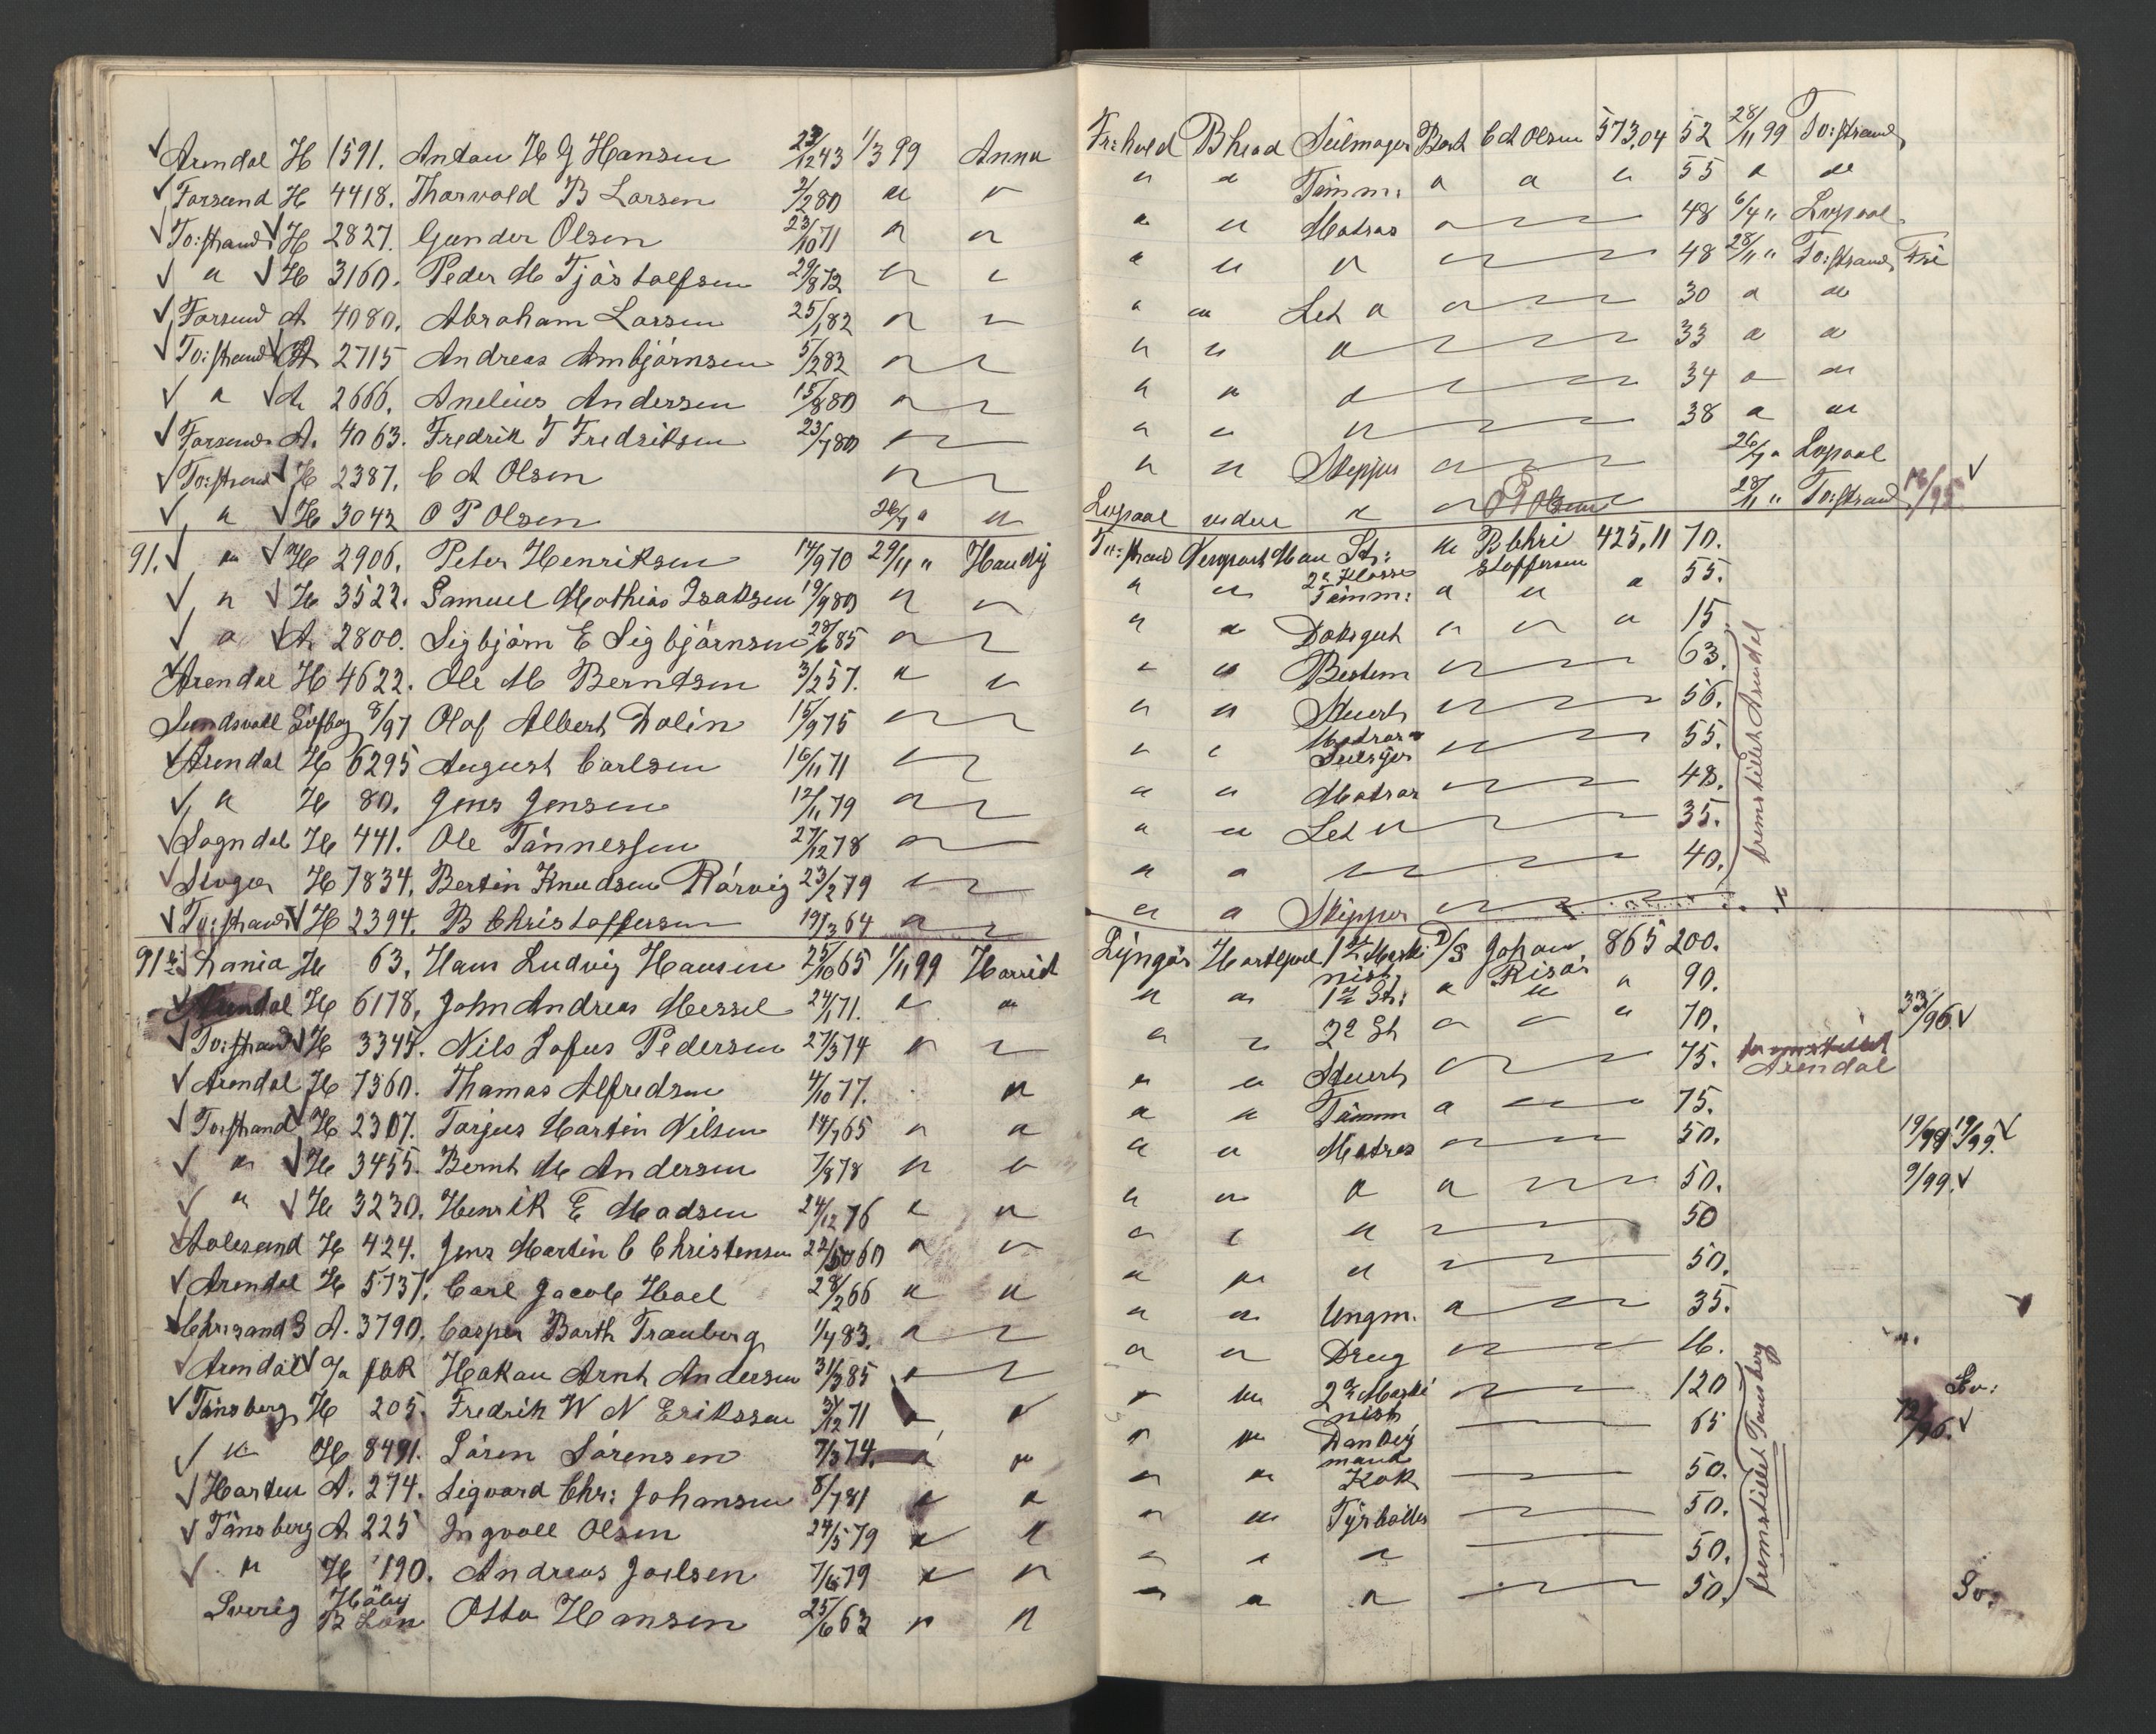 Arendal H 1591. Antan H G Hansen 23/12 43 1/3 99 Anna
Farsund H 4418. Thorvald B Larsen 2/2 80 " "
To:strand H 2827. Gunder Olsen 23/10 71 " "
" H 3160. Peder M Tjöstolfsen 29/8 72 " "
Farsund A 4080. Abraham Larsen 25/1 82 " "
To:strand A 2715 Andreas Ambjörnsen 5/2 82 "
" A 2666. Anelius Andersen 15/8 80 "
Farsund A. 4063. Fredrik T Fredriksen 23/7 80 "
To:strand H 2387. C A Olsen "
" H 3042 O P Olsen 26/7 " "
91. " H 2906. Peter Henriksen 14/9 70 29/11 " Haudy
" H 3522. Samuel Mathias Isaksen 19/9 80 " "
" A 2800. Sigbjörn E Sigbjörnsen 28/6 85 "
Arendal H 4622. Ole M Berndsen 3/2 57. " "
Sundsvall 8/97 Olof Albert Dolin 15/9 75 "
Arendal H 6295 August Carlsen 16/11 71 "
" H 80. Jens Jensen 12/11 79 "
Sogndal H 441. Ole Tönnessen 27/12 78 "
H 7834. Bertin Knudsen Rörvig 23/2 79 "
To:strand H 2394. B Christoffersen 19/3 64 "
91 Lania H 63. Hans Ludvig Hansen 25/10 65 1/11 99 Harrid
Arendal H 6178. John Andreas Messel 24/1 71. " "
To:strand H 3345. Nils Sofus Pedersen 27/3 74 "
Arendal H 7360. Thomas Alfredsen 4/10 77. "
To:strand H 2307. Tarjus Martin Nilsen 14/7 65 " "
" H 3455. Bernt M Andersen 7/8 78 " "
" H 3230. Henrik E Madsen 24/12 76 " "
Aalesund H 424. Jens Martin C Christensen 22/10 60 " "
Arendal H 5737. Carl Jacob Hoel 28/2 66 " "
Chrisand S A. 3790. Casper Barth Tranberg 1/7 83. "
Arendal Hakan Arnt Andersen 31/3 85 "
Tönsberg H 205. Fredrik W N Eriksson 31/12 71 " "
" H 8491. Sören Sörensen 7/3 74. " "
Horten A. 274. Sigvard Chr: Johansen 8/7 81 " "
Tönsberg A 225 Ingvall Olsen 24/5 79 " "
" H 190. Andreas Joelsen 7/6 79 " "
Sverig Otto Hansen 25/6 63 " "
Fr:hald Bhead Seilmager Bark C A Olsen 573,04 52 28/11 99 To:strand
" " Tömm: " " " 55 " "
" " Matros " 48 6/4 " Lvpool
" " " " 48 28/11 " To:strand Fri
" " Let " " 30 " "
" " " 33 " "
" " " 34 " "
" " " 38 " "
" " Skipper " 26/7 " Lvpool
Lvpool videre " " O P Olsen 28/11 " To:strand 16/95
To:strand Newport Mau St: " B Chri stoffersen 425,11 70.
" " 2n Klasse Tömm: " " " 55.
" " Daksgut " " " 15.
" " Bestm " 63.
" " Stuert " 56.
" " Matros Seilsyer " 55.
" " Matros " 48.
" " Let " 35.
" " " 40.
" " Skipper "
fremstillet Arendal
Lyngör Hartlpool 1st Maski nist D/S Johan Risör 865 200.
" " 1st St: " " " 90.
" " 2n St " " " 70. 33/96
" " Stuert " 75. fremstillet Arendal
" " Tömm " 75.
" " Matros " 50. 19/98 19/99.
" " " " 50. 9/99.
" " " 50
" " " 50.
" " Ungm. " 35.
" " Dreng " 16.
" " 2n Maski nist " 120 Sv:
" " Dankey mand 65 12/96.
" " Kok 50.
" " Fyrböder 50.
" " " 50.
" " " 50. Sv.
fremstillet Tönsberg